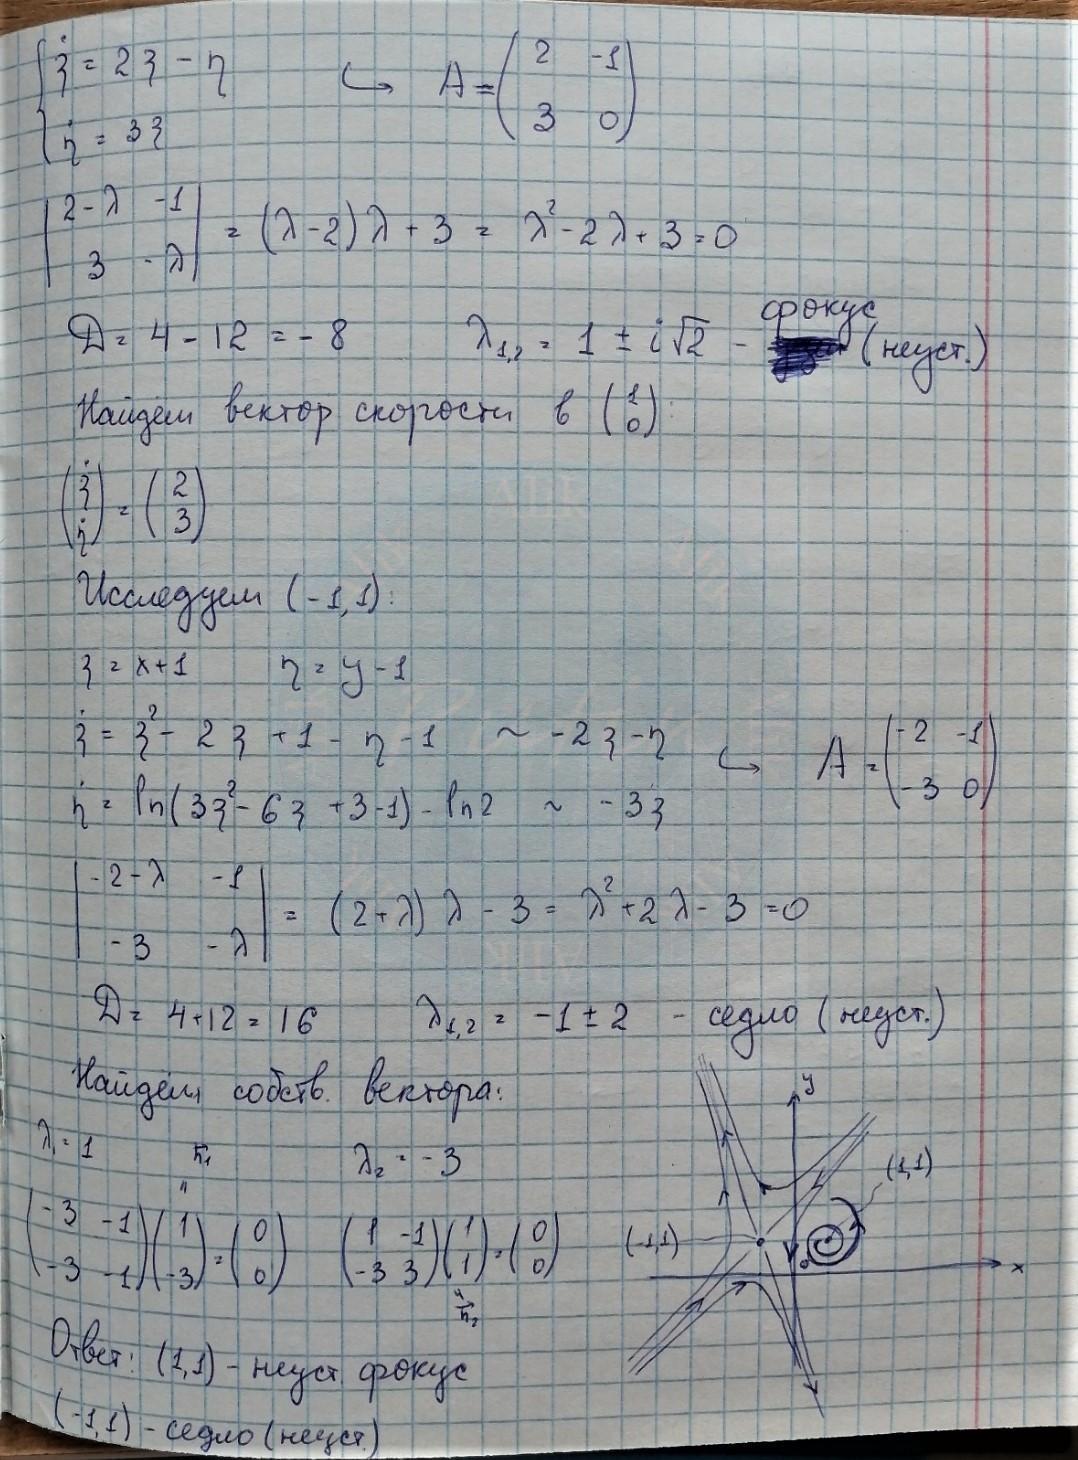 { ξ̇ = 2ξ - η ↪ A = (2 -1; 3 0)
η̇ = 3ξ
|2-λ -1; 3 -λ| = (λ-2)λ + 3 = λ² - 2λ + 3 = 0
D = 4 - 12 = -8 λ₁,₂ = 1 ± i√2 - фокус (неуст.)
Найдём вектор скорости в (1; 0):
(ξ̇; η̇) = (2; 3)
Исследуем (-1,1):
ξ = x+1 η = y-1
ξ̇ = ξ² - 2ξ + 1 - η - 1 ~ -2ξ - η ↪ A = (-2 -1; -3 0)
η̇ = ln(3ξ² - 6ξ + 3 - 1) - ln2 ~ -3ξ
|-2-λ -1; -3 -λ| = (2+λ)λ - 3 = λ² + 2λ - 3 = 0
D = 4+12 = 16 λ₁,₂ = -1 ± 2 - седло (неуст.)
Найдём собств. вектора:
λ₁ = 1 h₁ λ₂ = -3
(-3 -1; -3 -1)(1; -3) = (0; 0) (1 -1; -3 3)(1; 1) = (0; 0)
h₂
y
(1,1)
(-1,1)
0
x
Ответ: (1,1) - неуст. фокус
(-1,1) - седло (неуст.)